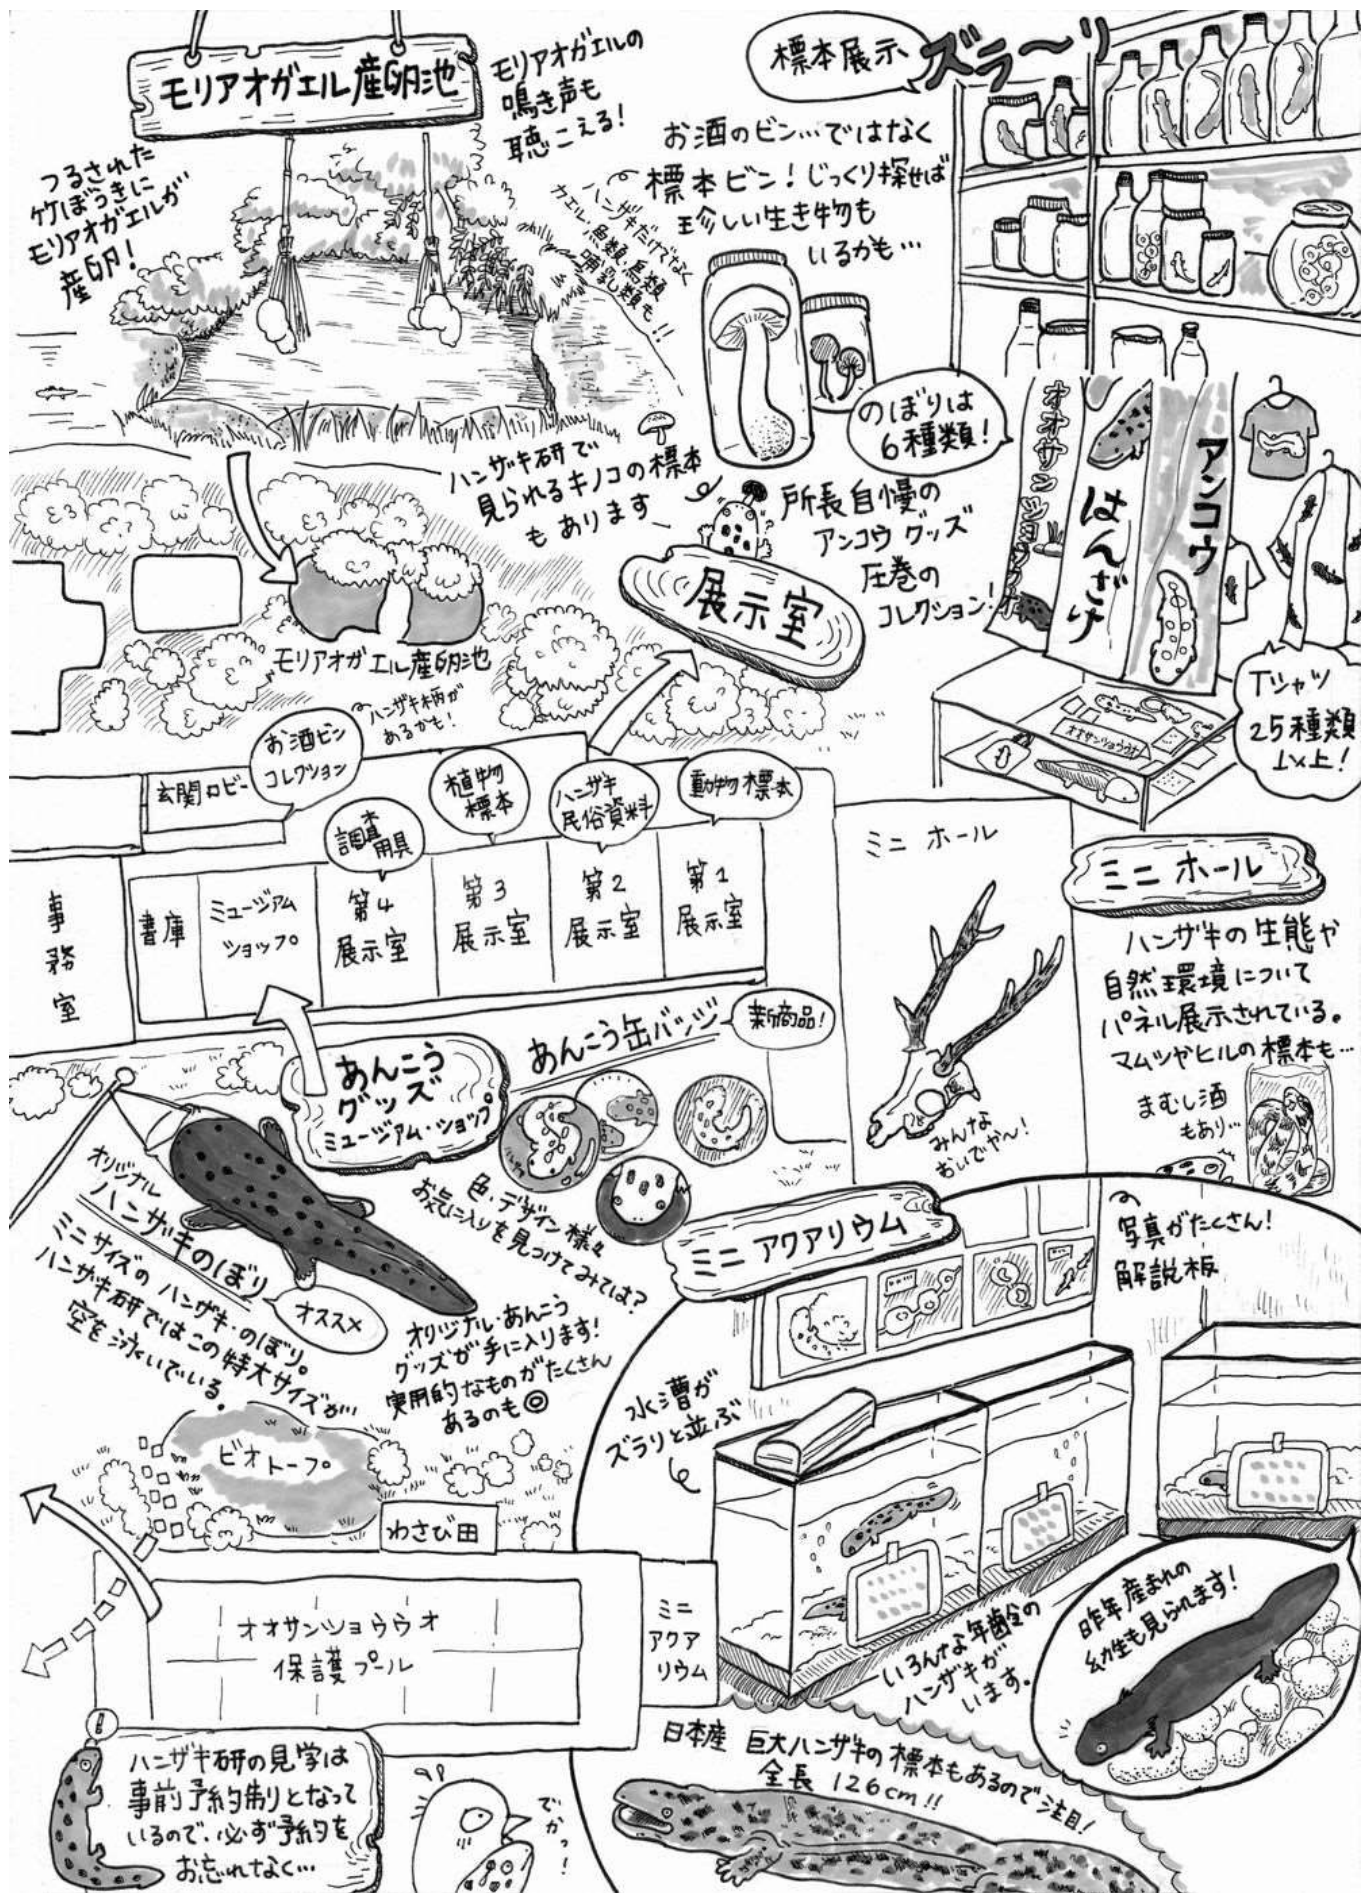 モリアオガエル産卵池
モリアオガエルの
鳴き声も
聴こえる!
つるされた
竹ぼうきに
モリアオガエルが
産卵!
標本展示
ズラ〜リ
お酒のビン…ではなく
標本ビン!じっくり探せば
珍しい生き物も
いるかも…
ハンザキだけでなく
カエル・魚類・鳥類
哺乳類も!!
ハンザキ研で
見られるキノコの標本
もあります
のぼりは
6種類!
所長自慢の
アンコウグッズ
圧巻の
コレクション!
オオサンショウウオ
はんざけ
アンコウ
オオサンショウウオ
Tシャツ
25種類
以上!
展示室
モリアオガエル産卵池
ハンザキ柄が
あるかも!
お酒ビン
コレクション
玄関ロビー
調査用具
植物
標本
ハンザキ
民俗資料
動物標本
事務室
書庫
ミュージアム
ショップ
第4
展示室
第3
展示室
第2
展示室
第1
展示室
ミニ ホール
ミニ ホール
ハンザキの生態や
自然環境について
パネル展示されている。
マムシやヒルの標本も…
まむし酒
もあり…
みんな
おいでや〜!
あんこう
グッズ
ミュージアム・ショップ
あんこう缶バッジ
新商品!
色・デザイン様々
お気に入りを見つけてみては?
オリジナル
ハンザキのぼり
オススメ
ミニサイズのハンザキ・のぼり。
ハンザキ研ではこの特大サイズが…
空を泳いでいる。
オリジナル・あんこう
グッズが手に入ります!
実用的なものがたくさん
あるのも◎
ミニ アクアリウム
写真がたくさん!
解説板
水漕が
ズラリと並ぶ
ビオトープ
わさび田
オオサンショウウオ
保護プール
ミニ
アクア
リウム
いろんな年齢の
ハンザキが
います。
昨年産まれの
幼生も見られます!
日本産 巨大ハンザキの標本もあるので注目!
全長 126cm!!
!
ハンザキ研の見学は
事前予約制となって
いるので、必ず予約を
お忘れなく…
でかっ!